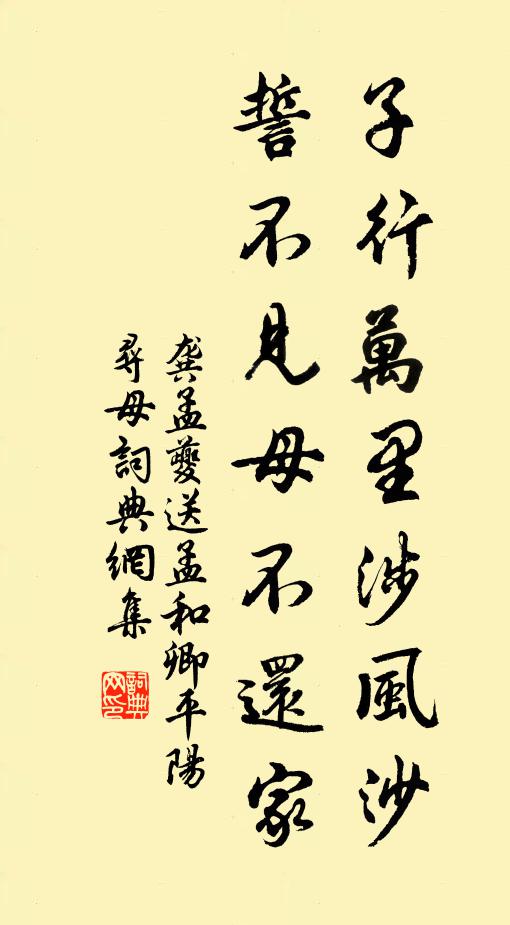 子行萬里涉風沙
誓不見母不還家
龔孟夔送孟和卿平陽
尋母詞典網集
詞典
网印